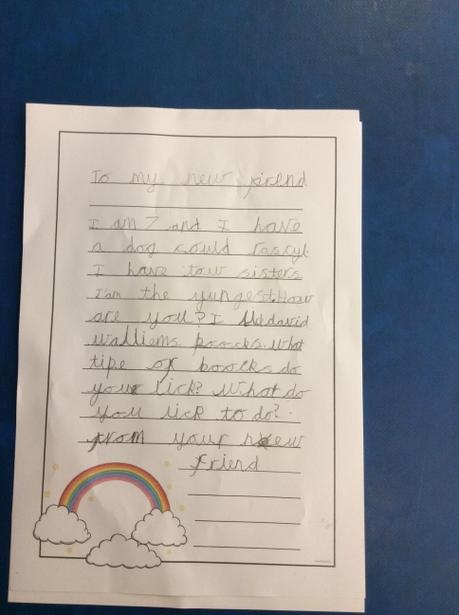 To my new firend
I am 7 and I have
a dog could rascyl.
I have tow sisters
I'am the yungest. How
are you? I david
walliems boocks. What
tipe of boocks do
your lick? What do
you lick to do?
from your new
friend